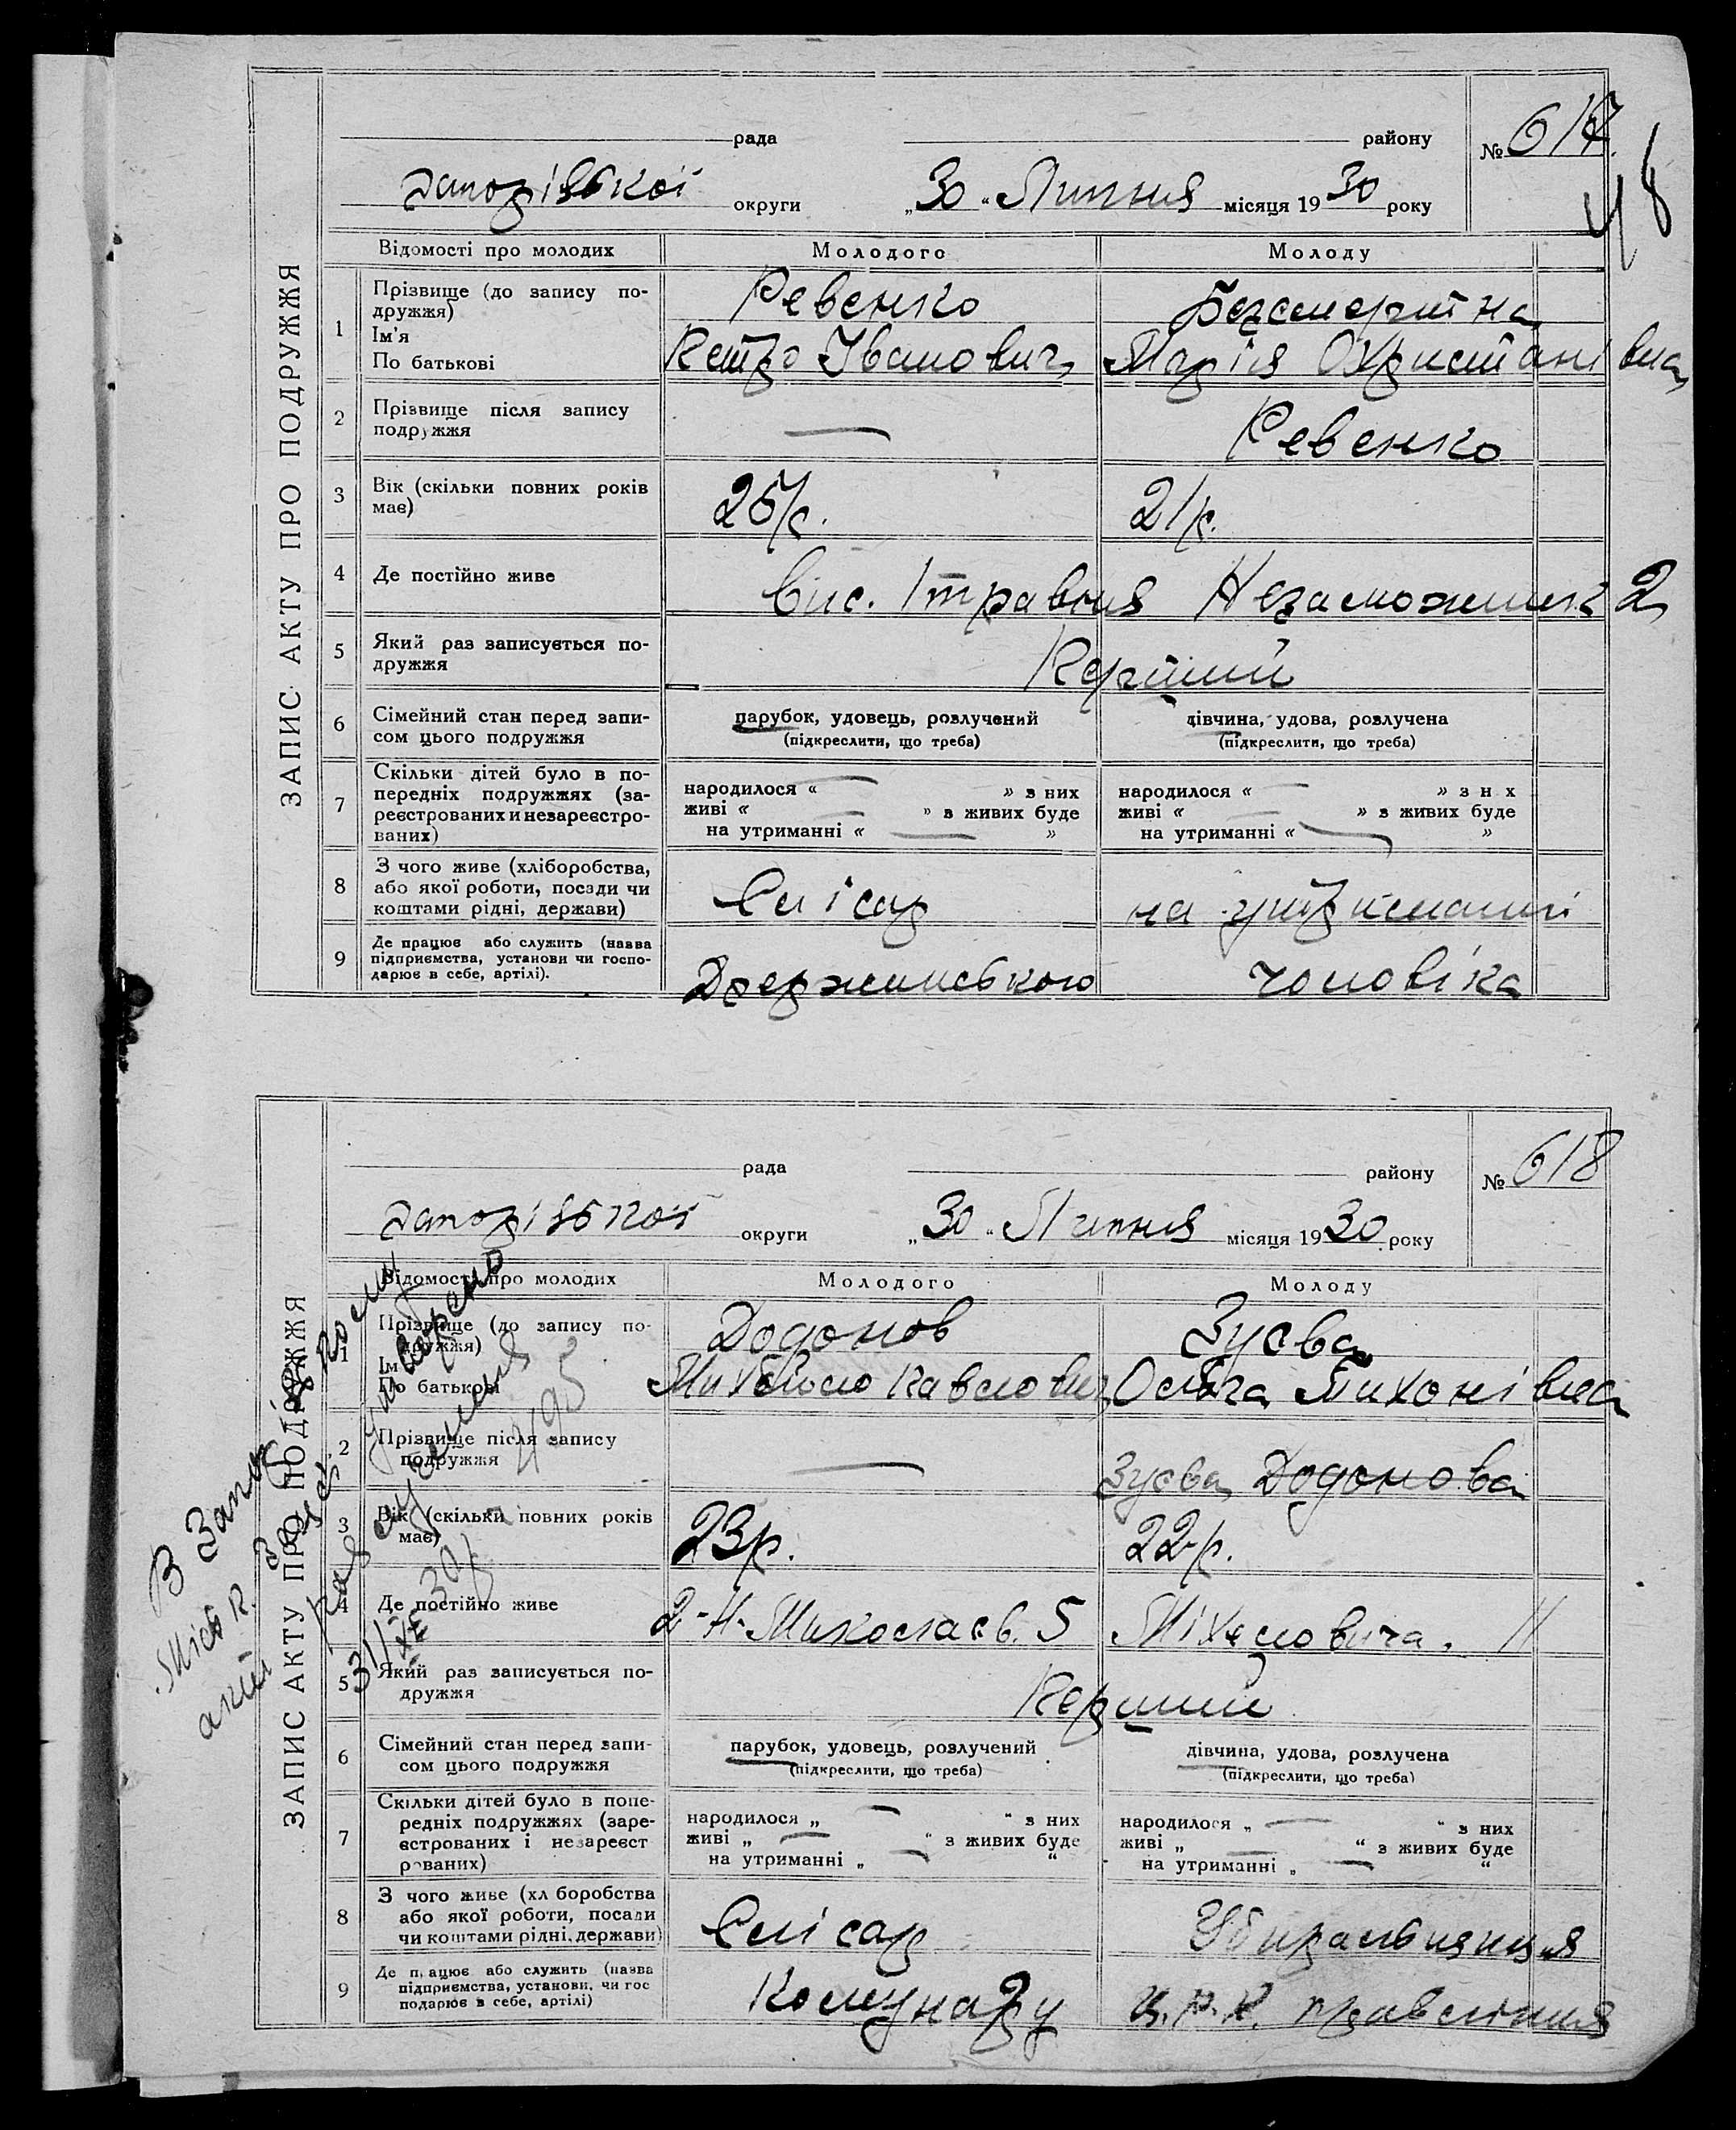 ЗАПИС АКТУ ПРО ПОДРУЖЖЯ
рада району № 617
48
Запорізької округи „30“ Липня місяця 1930 року
Відомості про молодих Молодого Молоду
1 Прізвище (до запису по-
дружжя) Ревенко Безсмертна
Ім'я
По батькові Петро Іванович Марія Охристанівна
2 Прізвище після запису
подружжя — Ревенко
3 Вік (скільки повних років
має) 25 р. 21 р.
4 Де постійно живе Вис. 1 травня Незаможник 2
5 Який раз записується по-
дружжя Перший
6 Сімейний стан перед запи-
сом цього подружжя
парубок, удовець, розлучений дівчина, удова, розлучена
(підкреслити, що треба) (підкреслити, що треба)
7 Скільки дітей було в по-
передніх подружжях (за-
реєстрованих и незареєстро-
ваних)
народилося « — » з них народилося « — » з н х
живі « — » з живих буде живі « — » з живих буде
на утриманні « — » на утриманні « — »
8 З чого живе (хліборобства,
або якої роботи, посади чи
коштами рідні, держави) Слісар на утриманні
9 Де працює або служить (назва
підприємства, установи чи госпо-
дарює в себе, артілі). Дзержинського чоловіка
ЗАПИС АКТУ ПРО ПОДРУЖЖЯ
рада району № 618
Запорізької округи „30“ Липня місяця 1930 року
Відомості про молодих Молодого Молоду
1 Прізвище (до запису по-
дружжя) Додонов Зуєва
Ім
По батькові Михайло Павлович Ольга Тихонівна
2 Прізвище після запису
подружжя — Зуєва Додонова
3 Вік (скільки повних років
має) 23 р. 22 р.
4 Де постійно живе 2-Н-Миколаєв. 5 Міхеловича. 11
5 Який раз записується по-
дружжя Перший
6 Сімейний стан перед запи-
сом цього подружжя
парубок, удовець, розлучений дівчина, удова, розлучена
(підкреслити, що треба) (підкреслити, що треба)
7 Скільки дітей було в попе-
редніх подружжях (заре-
єстрованих і незареєст
рованих)
народилося „ — “ з них народилося „ — “ з них
живі „ — “ з живих буде живі „ — “ з живих буде
на утриманні „ — “ на утриманні „ — “
8 З чого живе (хл боробства
або якої роботи, посади
чи коштами рідні, держави) Слісар Убиральниця
9 Де працює або служить (назва
підприємства, установи, чи гос
подарює в себе, артілі) Комунару ц.р.к. правління
В Запоріз
міськ. Загсі
акт
495